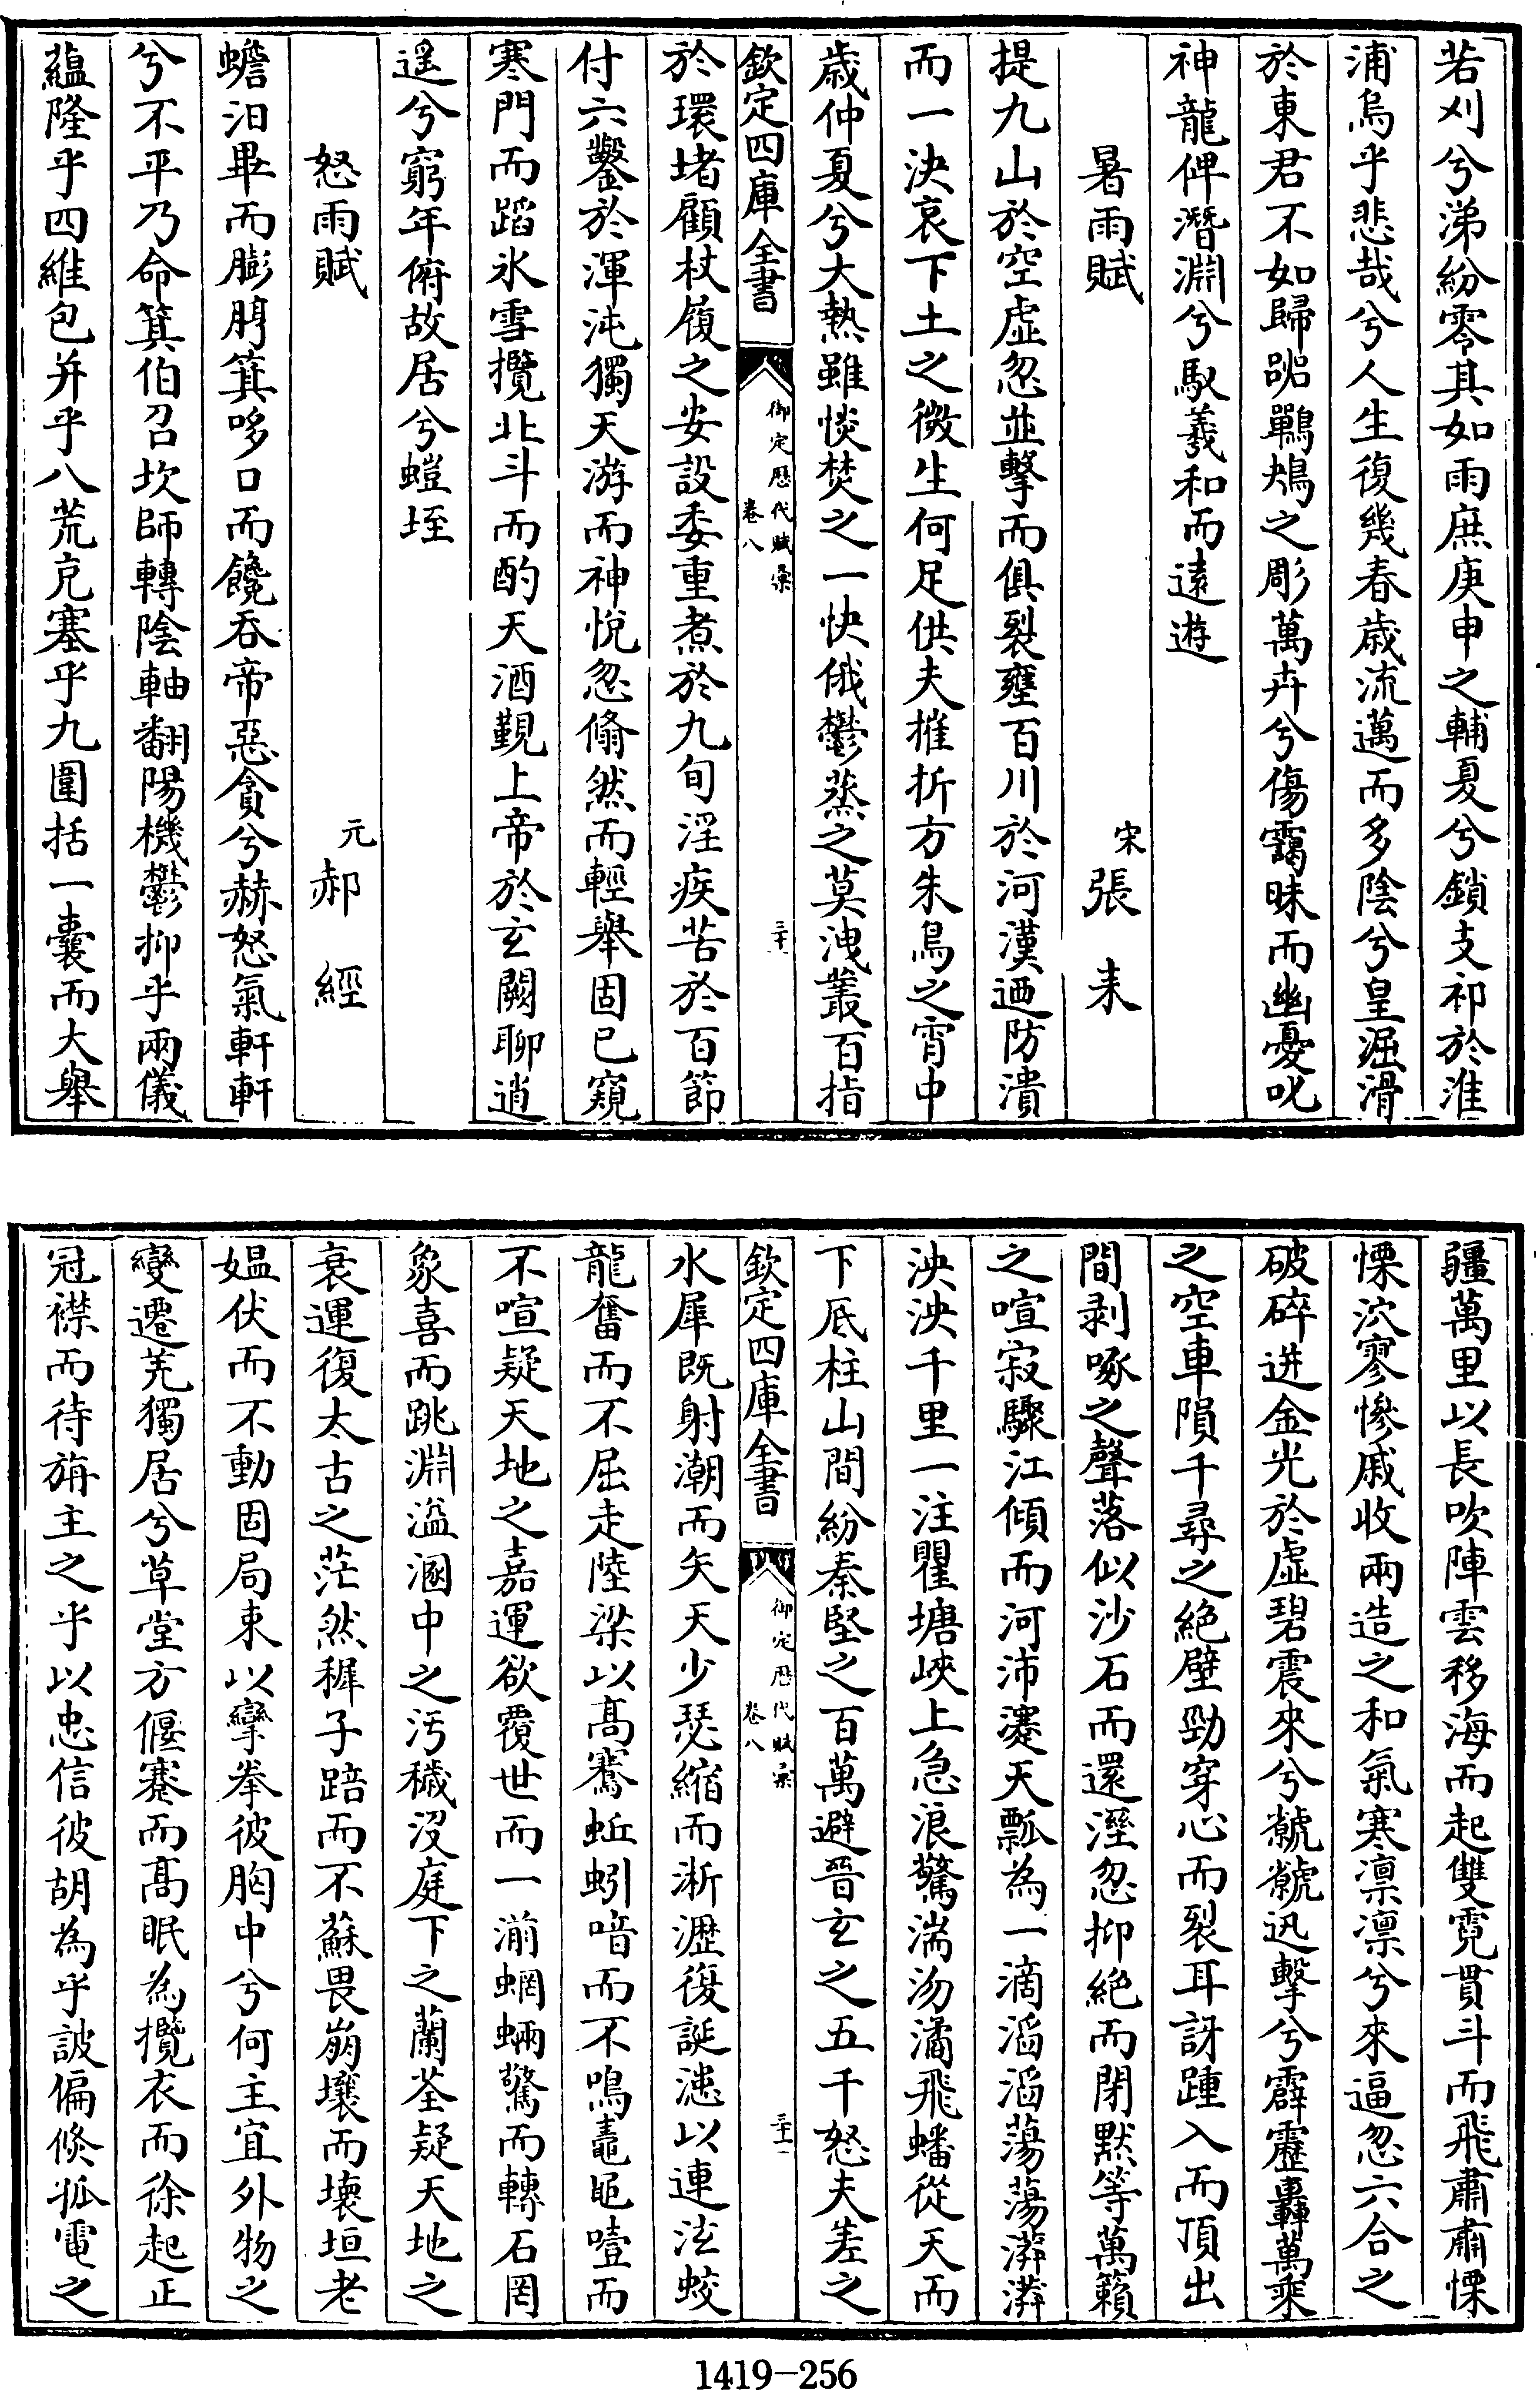 若刈兮涕紛零其如雨庶庚申之輔夏兮鎖支祁於淮
浦烏乎悲哉兮人生復幾春歲流邁而多陰兮皇淈滑
於東君不如歸㗖鷤鴂之彫萬卉兮傷靄昧而幽憂叱
神龍俾潛淵兮馭羲和而遠遊
暑雨賦
宋張耒
提九山於空虛忽並擊而俱裂壅百川於河漢迺防潰
而一決哀下土之微生何足供夫摧折方朱鳥之宵中
歲仲夏兮大熱雖惔焚之一快俄鬱蒸之莫洩叢百指
欽定四庫全書
御定歷代賦彙
卷八
三十
於環堵顧杖屨之安設委重煮於九旬淫疾苦於百節
付六鑿於渾沌獨天游而神悅忽翛然而輕舉固已窺
寒門而蹈氷雪攬北斗而酌天酒覲上帝於玄闕聊逍
遥兮窮年俯故居兮螘垤
怒雨賦
元郝經
蟾汨畢而膨脝箕哆口而饞呑帝惡貪兮赫怒氣軒軒
兮不平乃命箕伯召坎師轉陰軸翻陽機鬱抑乎兩儀
蘊隆乎四維包并乎八荒充塞乎九圍括一囊而大舉
疆萬里以長吹陣雲移海而起雙霓貫斗而飛肅肅慄
慄泬寥慘戚收兩造之和氣寒凛凛兮來逼忽六合之
破碎迸金光於虛碧震來兮虩虩迅擊兮霹靂轟萬乘
之空車隕千尋之絶壁勁穿心而裂耳訝踵入而頂出
間剥啄之聲落似沙石而還溼忽抑絶而閉黙等萬籟
之喧寂驟江傾而河沛瀽天瓢為一滴滔滔蕩蕩漭漭
泱泱千里一注瞿塘峽上急浪驚湍汤潏飛蟠從天而
下底柱山間紛秦堅之百萬避晉玄之五千怒夫差之
欽定四庫全書
御定歷代賦彙
卷八
三十一
水犀既射潮而矢天少瑟縮而淅瀝復誕漶以連泫蛟
龍奮而不屈走陸梁以高騫蚯蚓喑而不鳴鼃黽噎而
不喧疑天地之嘉運欲覆世而一湔蝄蜽驚而轉石罔
象喜而跳淵溢溷中之汚穢沒庭下之蘭荃疑天地之
衰運復太古之茫然穉子踣而不蘇畏崩壤而壞垣老
媪伏而不動固局束以攣拳彼胸中兮何主宜外物之
變遷羌獨居兮草堂方偃蹇而高眠為攬衣而徐起正
冠襟而待旃主之乎以忠信彼胡為乎詖偏倐狐電之
1419-256